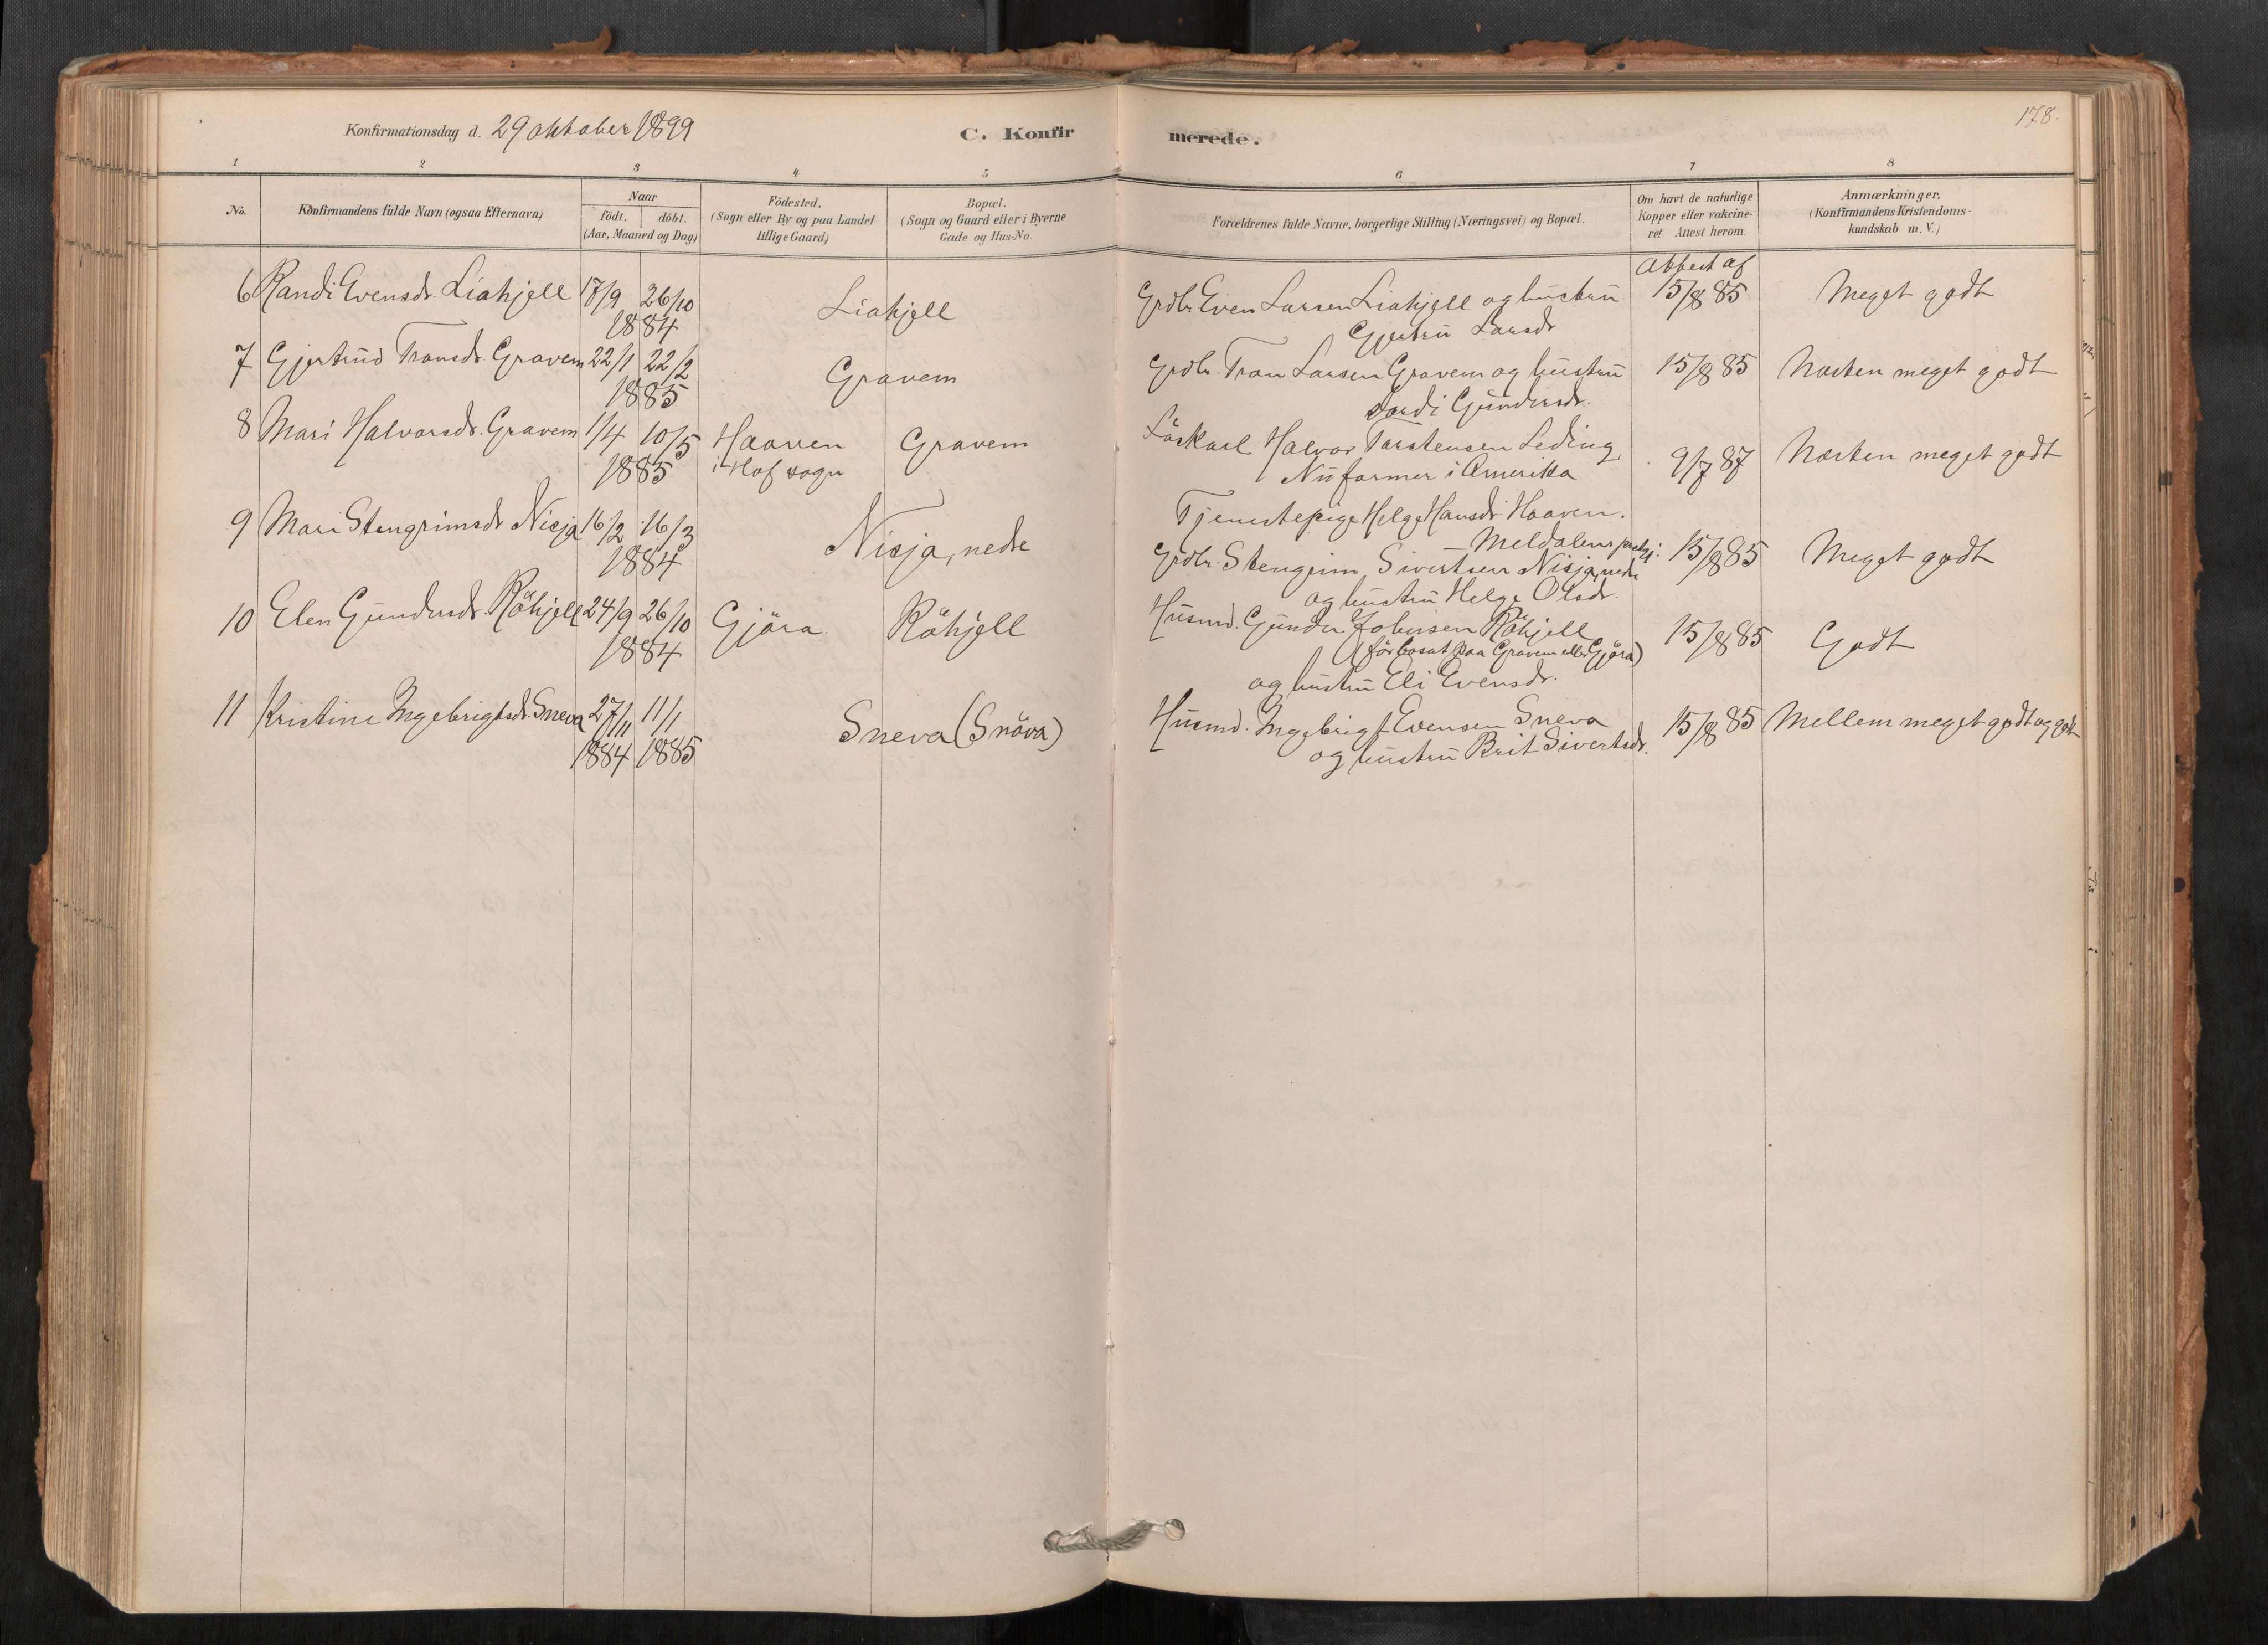 178.
Konfirmationsdag d. 29 oktober 1899
C. Konfirmerede.
1 2 3 4 5 6 7 8
No.
Konfirmandens fulde Navn (ogsaa Efternavn)
Naar
födt. döbt.
(Aar, Maaned og Dag)
Födested.
(Sogn eller By og paa Landet
tillige Gaard)
Bopæl.
(Sogn og Gaard eller i Byerne
Gade og Hus-No.
Forældrenes fulde Navne, borgerlige Stilling (Næringsvei) og Bopæl.
Om havt de naturlige
Kopper eller vakcine-
ret Attest herom.
Anmærkninger.
(Konfirmandens Kristendoms-
kundskab m. V.)
6 Randi Evensdr. Liahjell 17/9 26/10 Liahjell Grdbr. Even Larsen Liahjell og hustru Attest af 15/8 85 Meget godt
1884 Gjertru Larsdr.
7 Gjertrud Tronsdr. Gravem 22/1 22/2 Gravem Grdbr. Tron Larsen Gravem og hustru 15/8 85 Næsten meget godt
1885 Gundersdr.
8 Mari Halvorsdr. Gravem 1/4 10/5 Haaven Gravem Löskarl Halvor Torstensen Leding 9/7 87 Næsten meget godt
1885 i Hof sogn Nu farmer i Amerika
Tjenestepige Helge Hansdr. Haaven.
Meldalens prstgj.
9 Mari Stengrimsdr. Nisja 16/2 16/3 Nisja, nedre Grdbr. Stengrim Sivertsen Nisja, nedre 15/8 85 Meget godt
1884 og hustru Helge Olsdr.
10 Elen Gundersdr. Röhjell 24/9 26/10 Gjöra Röhjell Husmd. Gunder Johnsen Röhjell 15/8 85 Godt
1884 (för bosat paa Gravem eller Gjöra)
og hustru Eli Evensdr.
11 Kristine Ingebrigtsdr. Sneva 27/11 11/1 Sneva (Snöva) Husmd. Ingebrigt Evensen Sneva 15/8 85 Mellem meget godt og godt
1884 1885 og hustru Brit Sivertsdr.